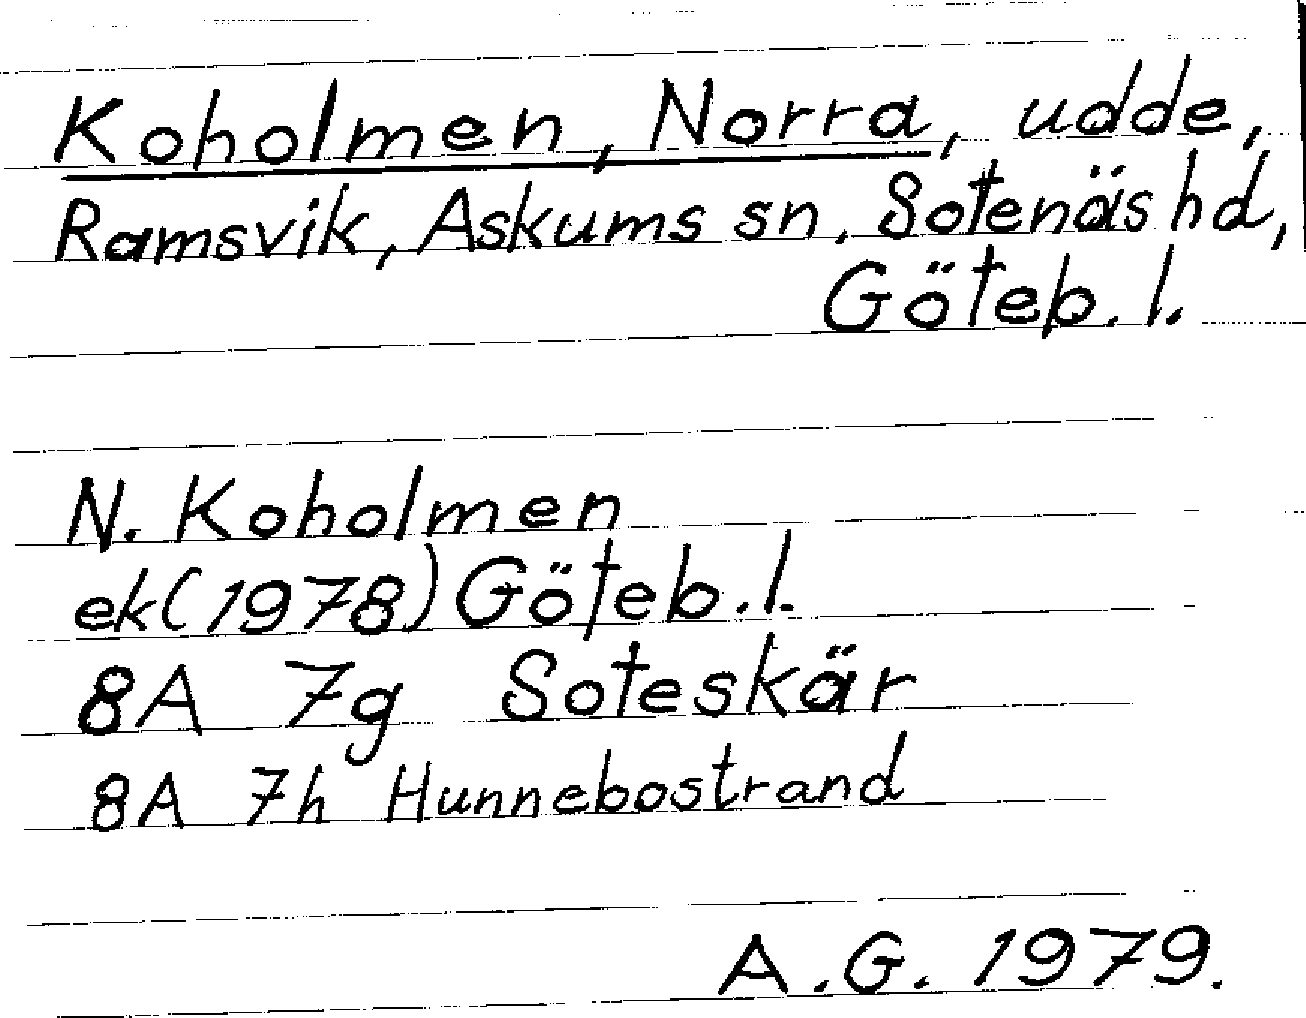 Koholmen, Norra, udde,
Ramsvik, Askums sn, Sotenäs hd,
Göteb. l.
N. Koholmen
ek (1978) Göteb. l.
8A 7g Soteskär
8A 7h Hunnebostrand
A.G. 1979.